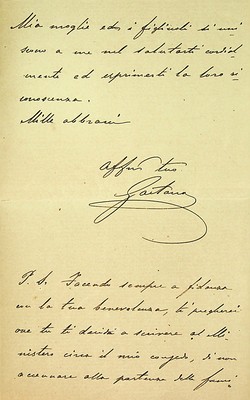 Mia moglie ed i figliuoli si uni
scono a me nel salutarti cordial
mente ed esprimerti la loro ri
conoscenza.
Mille abbracci
Affmo tuo
Gaetano
P. S. Facendo sempre a fidanza
con la tua benevolenza, ti pregherei
ove tu ti decida a scrivere al Mi-
nistero circa il mio congedo, di non
accennare alla partenza della fami